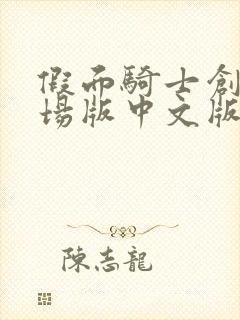 假面騎士創
場版中文版
陳志龍